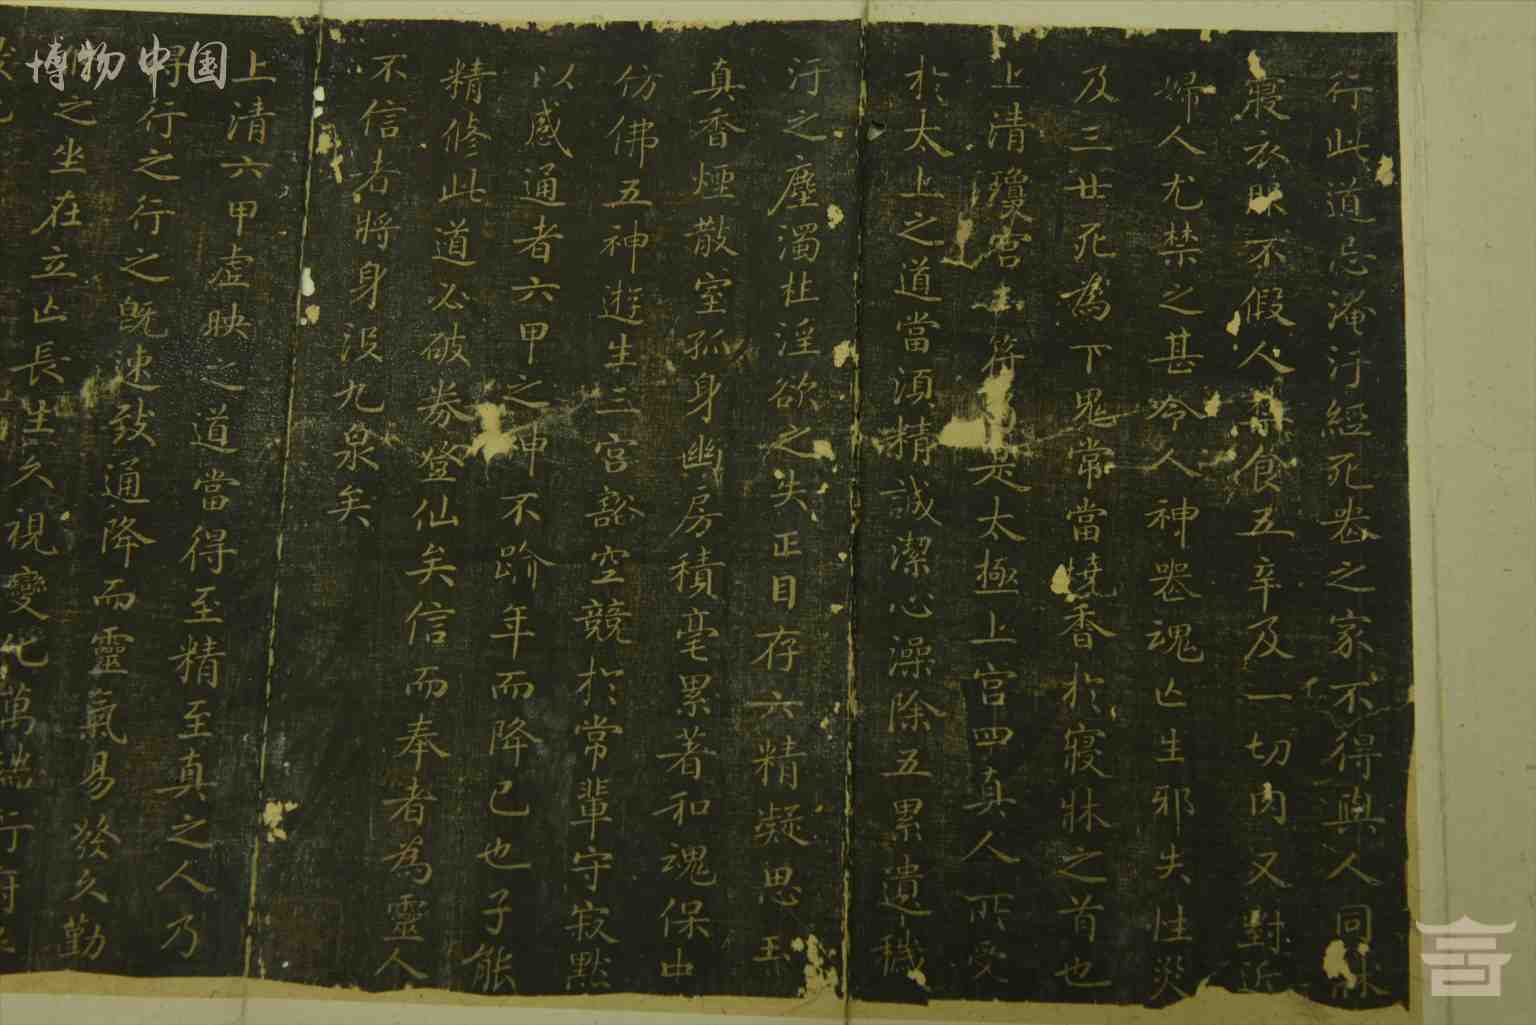 行此道忌淹汙經死喪之家不得與人同牀
寢衣服不假人禁食五辛及一切肉又對近
婦人尤禁之甚令人神喪魂亡生邪失性災
及三世死為下鬼常當燒香於寢牀之首也
上清瓊宮玉符乃是太極上宮四真人所受
於太上之道當須精誠潔心澡除五累遺穢
汙之塵濁杜淫欲之失正目存六精凝思玉
真香煙散室孤身幽房積毫累著和魂保中
仿佛五神遊生三宮豁空競於常輩守寂默
以感通者六甲之神不踰年而降已也子能
精修此道必破券登仙矣信而奉者為靈人
不信者將身没九泉矣
上清六甲虛映之道當得至精至真之人乃
得行之行之既速致通降而靈氣易發久勤
之坐在立亡長生久視變化萬端行
博物中国